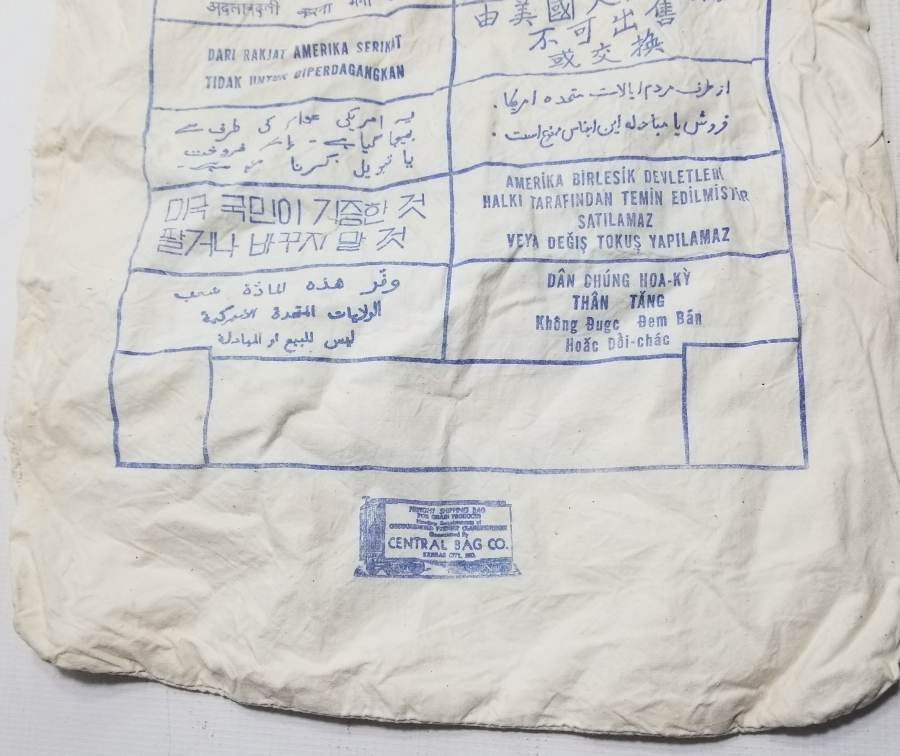 अदलाबदली करना मना
DARI RAKJAT AMERIKA SERIKAT
TIDAK UNTUK DIPERDAGANGKAN
یہ امریکی عوام کی طرف سے
بھیجا گیا ہے - اسے فروخت
یا تبدیل کرنا منع ہے
미국 국민이 기증한 것
팔거나 바꾸지 말 것
وفّر هذه المادّة شعب
الولايات المتحدة الأمريكية
ليس للبيع او المبادلة
由美國人
不可出售
或交換
از طرف مردم ایالات متحده امریکا.
فروش یا مبادله این اجناس ممنوع است.
AMERİKA BİRLEŞİK DEVLETLERİ
HALKI TARAFINDAN TEMİN EDİLMİŞTİR
SATILAMAZ
VEYA DEĞİŞ TOKUŞ YAPILAMAZ
DÂN CHÚNG HOA-KỲ
THÂN TĂNG
Không Đugc Đem Bán
Hoăc Dồi-chác
FREIGHT SHIPPING BAG
FOR GRAIN PRODUCTS
Guaranteed By
CENTRAL BAG CO.
KANSAS CITY, MO.